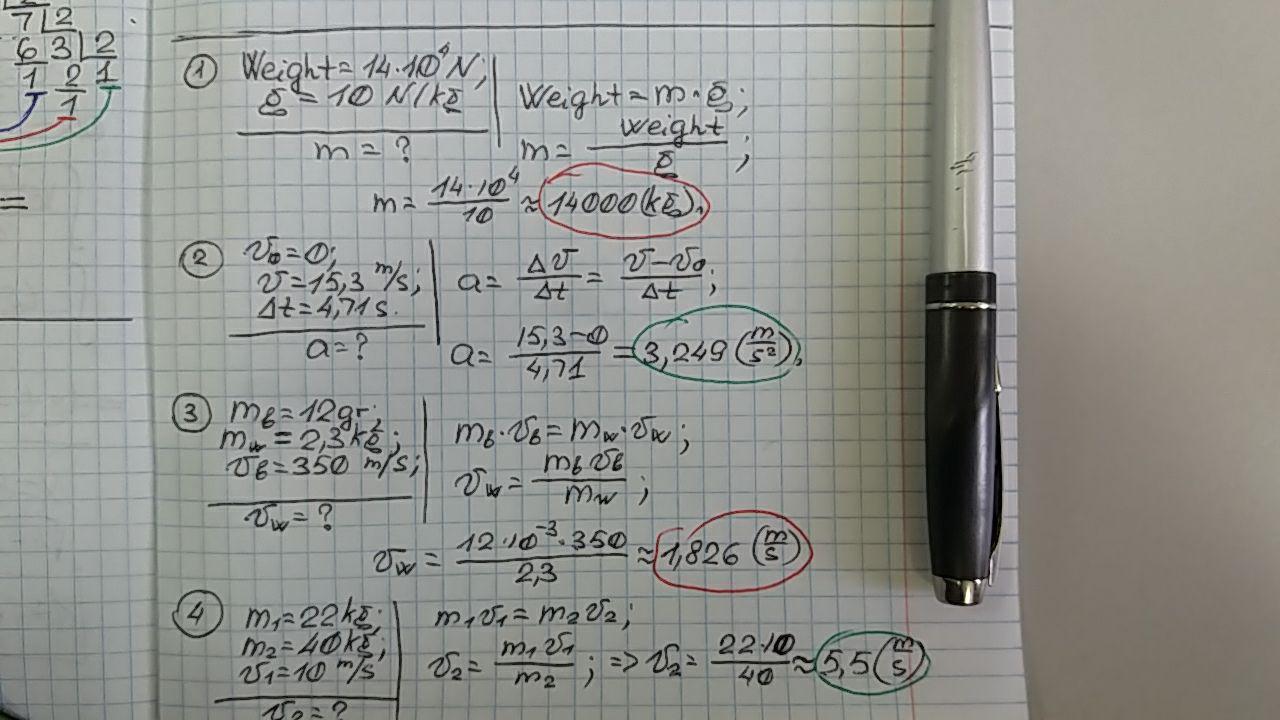 7 2
6 3 2
1 2 1
1
=
① Weight = 14·10⁴ N;
g = 10 N/kg
m = ?
Weight = m·g;
m = weight / g ;
m = 14·10⁴ / 10 ≈ 14000 (kg).
② v₀ = 0;
v = 15,3 m/s;
Δt = 4,71 s.
a = ?
a = Δv / Δt = v – v₀ / Δt ;
a = 15,3 – 0 / 4,71 = 3,249 (m/s²).
③ m₆ = 12gr;
m_w = 2,3 kg;
v₆ = 350 m/s;
v_w = ?
m₆·v₆ = m_w·v_w;
v_w = m₆v₆ / m_w ;
v_w = 12·10⁻³·350 / 2,3 ≈ 1,826 (m/s)
④ m₁ = 22 kg;
m₂ = 40 kg;
v₁ = 10 m/s
v₂ = ?
m₁v₁ = m₂v₂;
v₂ = m₁v₁ / m₂ ; => v₂ = 22·10 / 40 ≈ 5,5 (m/s)